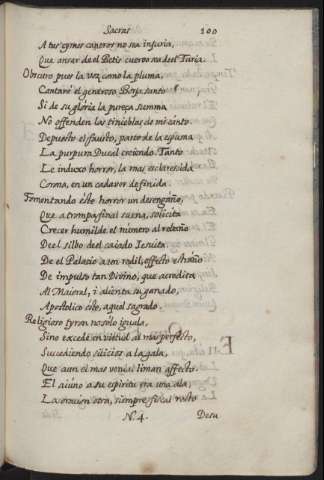 Sacras
200
A tus cysnes canoros no sea injuria,
Que ansar de el Betis cuervo sea de el Turia.
Obscuro pues la voz como la pluma,
Cantaré el generoso Borja santo
Si de su gloria la pureça summa
No offenden las tinieblas de mi canto
Depuesto el fausto, parto de la espuma
La purpura Ducal creiendo. Tanto
Le induxo horror, la mas esclarecida
Corona, en un cadaver definida
Fomentando este horror un desengaño,
Que a trompa final suena, solicita
Crecer humilde el número al rebaño
De el silbo de el caiado Jesuita
De el Palacio a un redil, effecto estraño
De impulso tan Divino, que acredita
Al Maioral, i alienta su ganado,
Apostolico este, aquel sagrado.
Religioso tyron no sólo iguala,
Sino excede en virtud al mas perfecto,
Succediendo silicios a la gala,
Que aun el mas venial liman affecto.
El aiúno a su espiritu era una ala,
La oracion otra, siempre fiscal recto
N. 4.
Desu